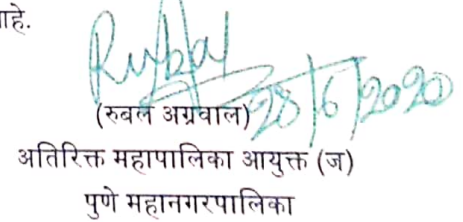 ाहे.
Rubal
28/6/2020
(रुबल अग्रवाल)
अतिरिक्त महापालिका आयुक्त (ज)
पुणे महानगरपालिका